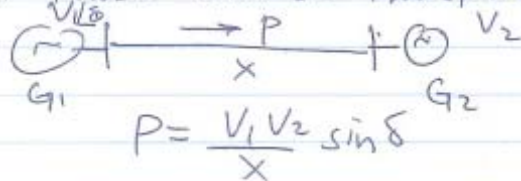 V₁∠δ → P V₂
~ ~
X
G₁ G₂
P = V₁ V₂ / X sin δ